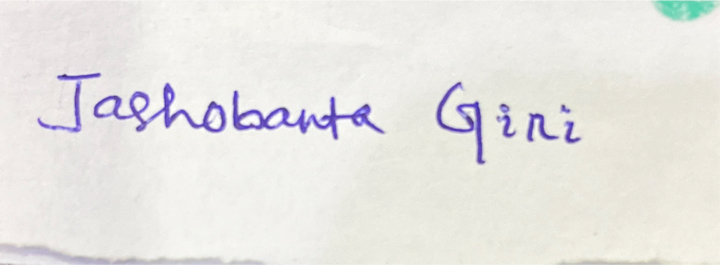 Jashobanta Giri